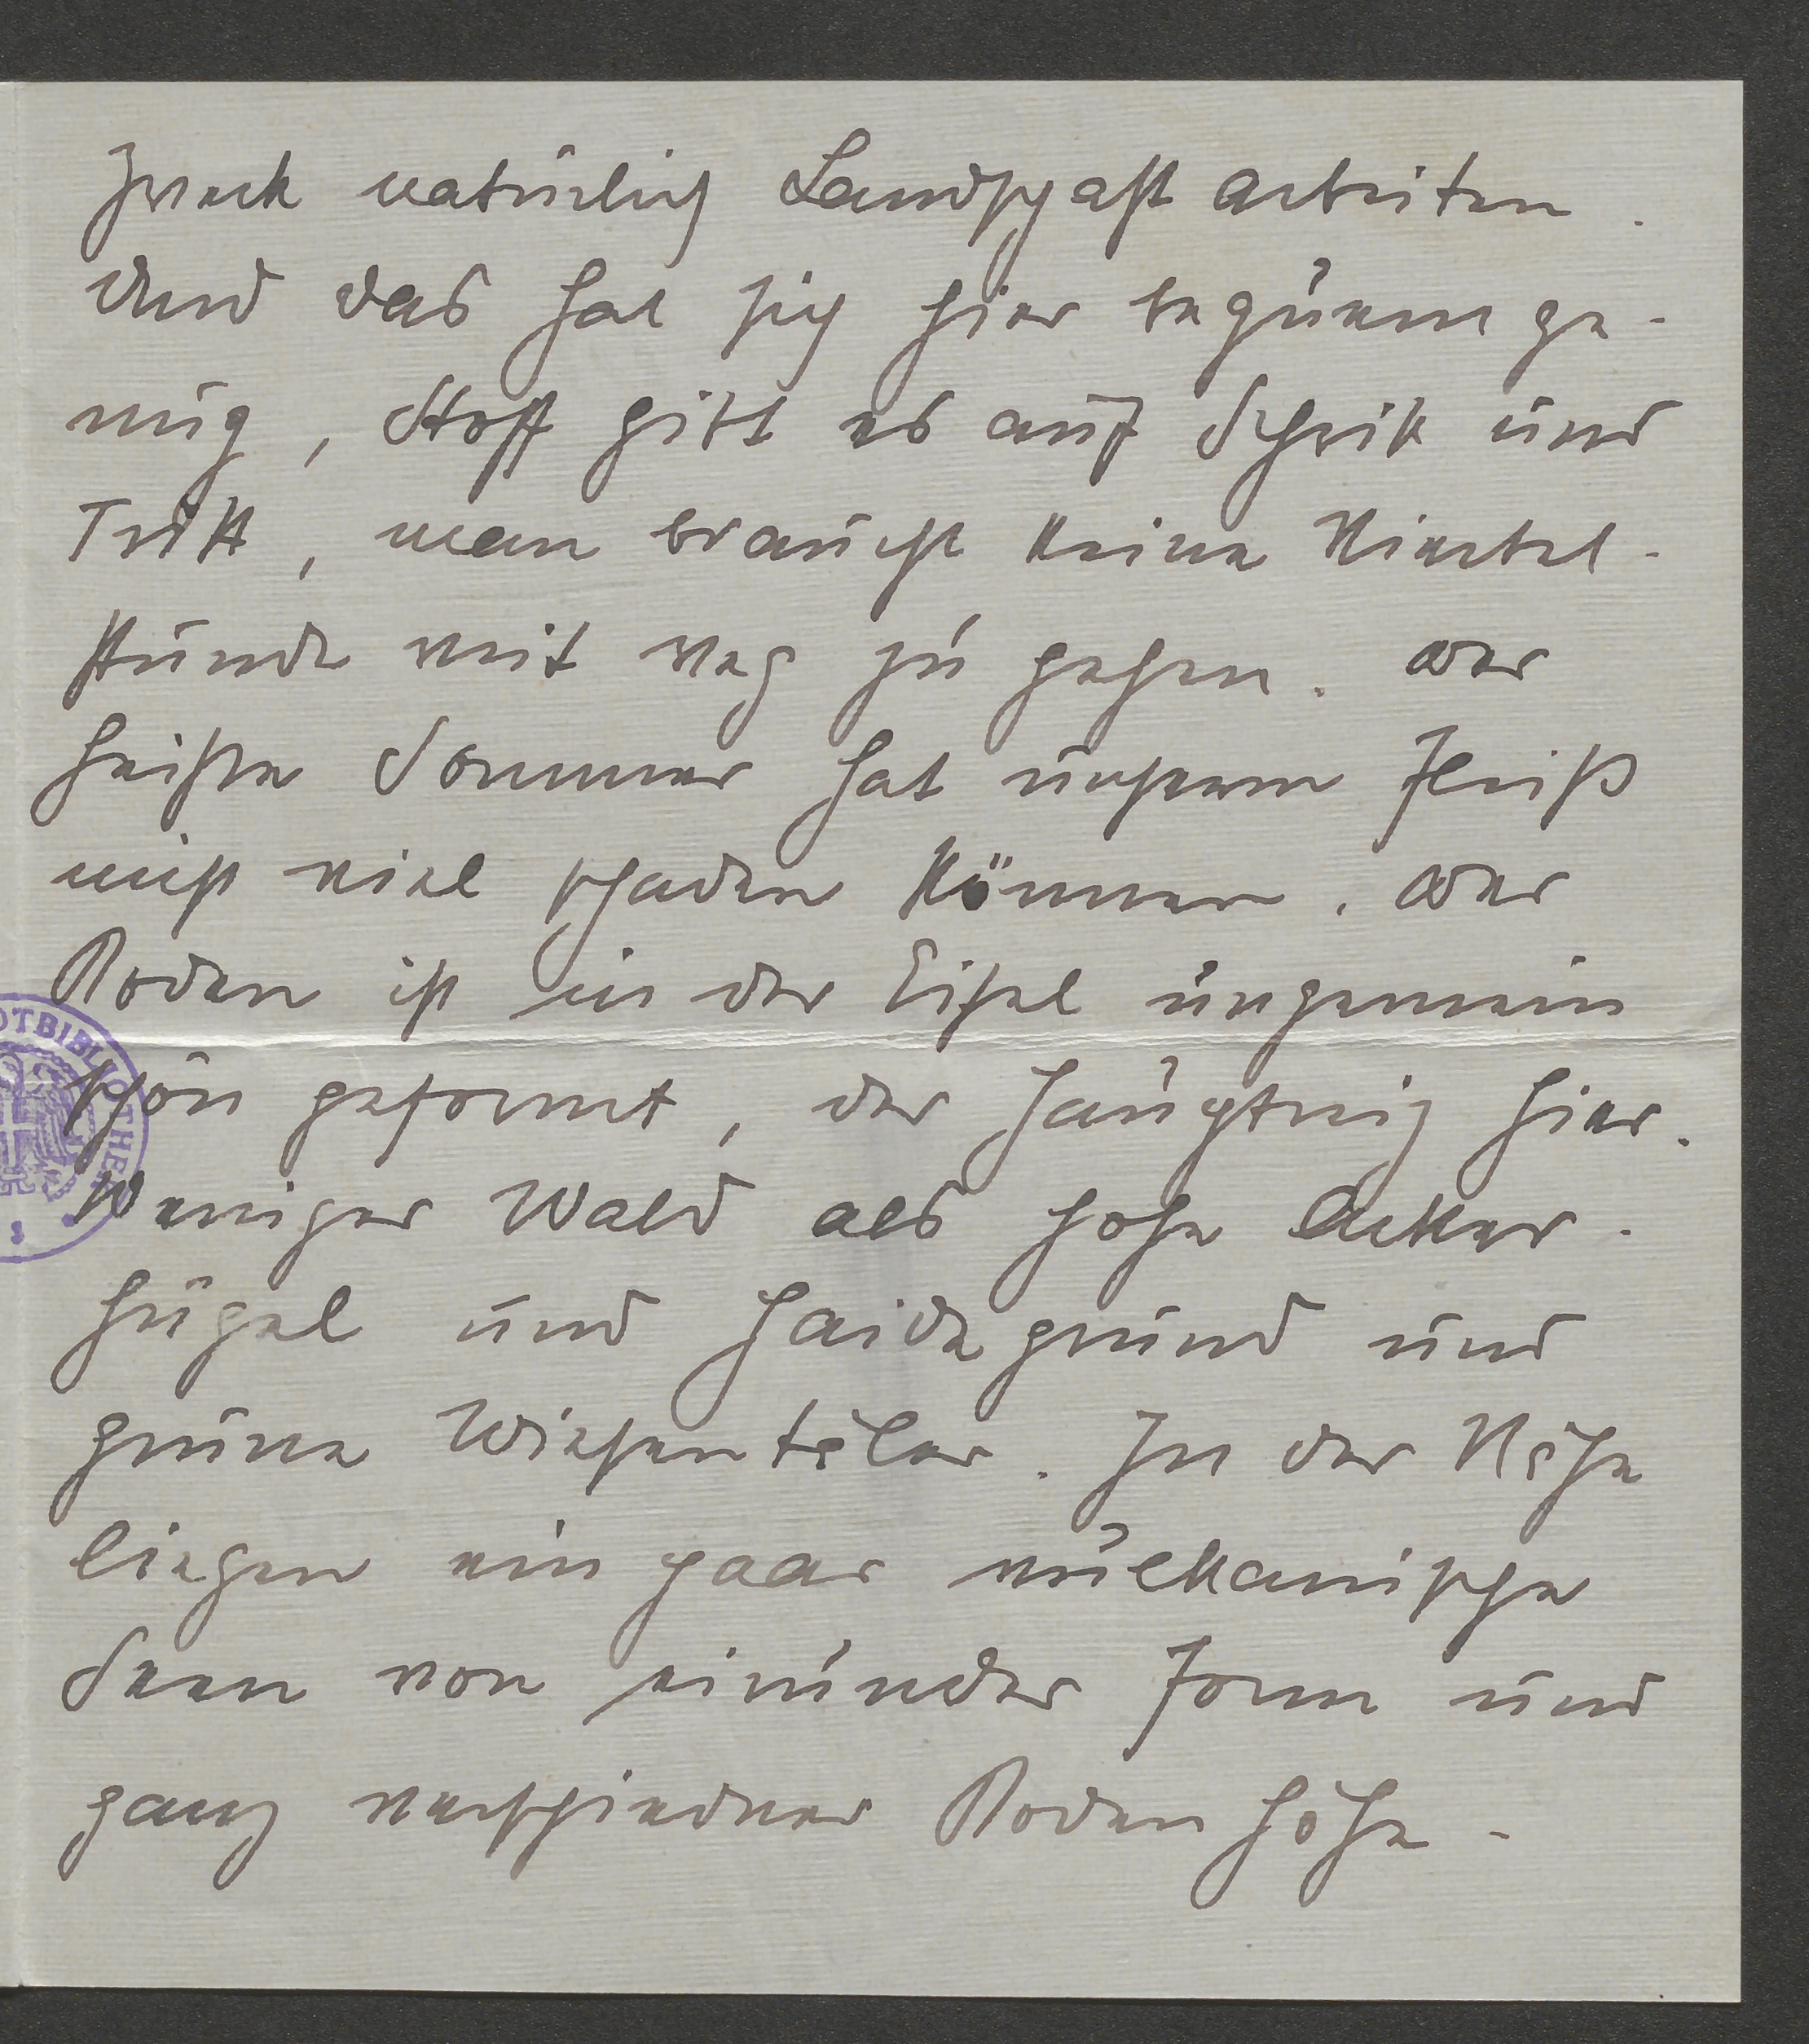 Zweck natürlich Landschaft arbeiten.
Und das hat sich hier bequem ge-
nug, Stoff gibt es auf Schritt und
Tritt, man braucht keine Viertel-
stunde mit weg zu gehen. Der
heiße Sommer hat unserm Fleiß
nicht viel schaden können. Der
Boden ist in der Eifel ungemein
schön geformt, der Hauptreiz hier.
Weniger Wald als hohe Acker-
hügel und Haidegrund und
grüne Wiesentäler. In der Nähe
liegen ein paar vulkanische
Seen von einunder Form und
ganz verschiedner Bodenhöhe -
OTBIBLIOTHEK